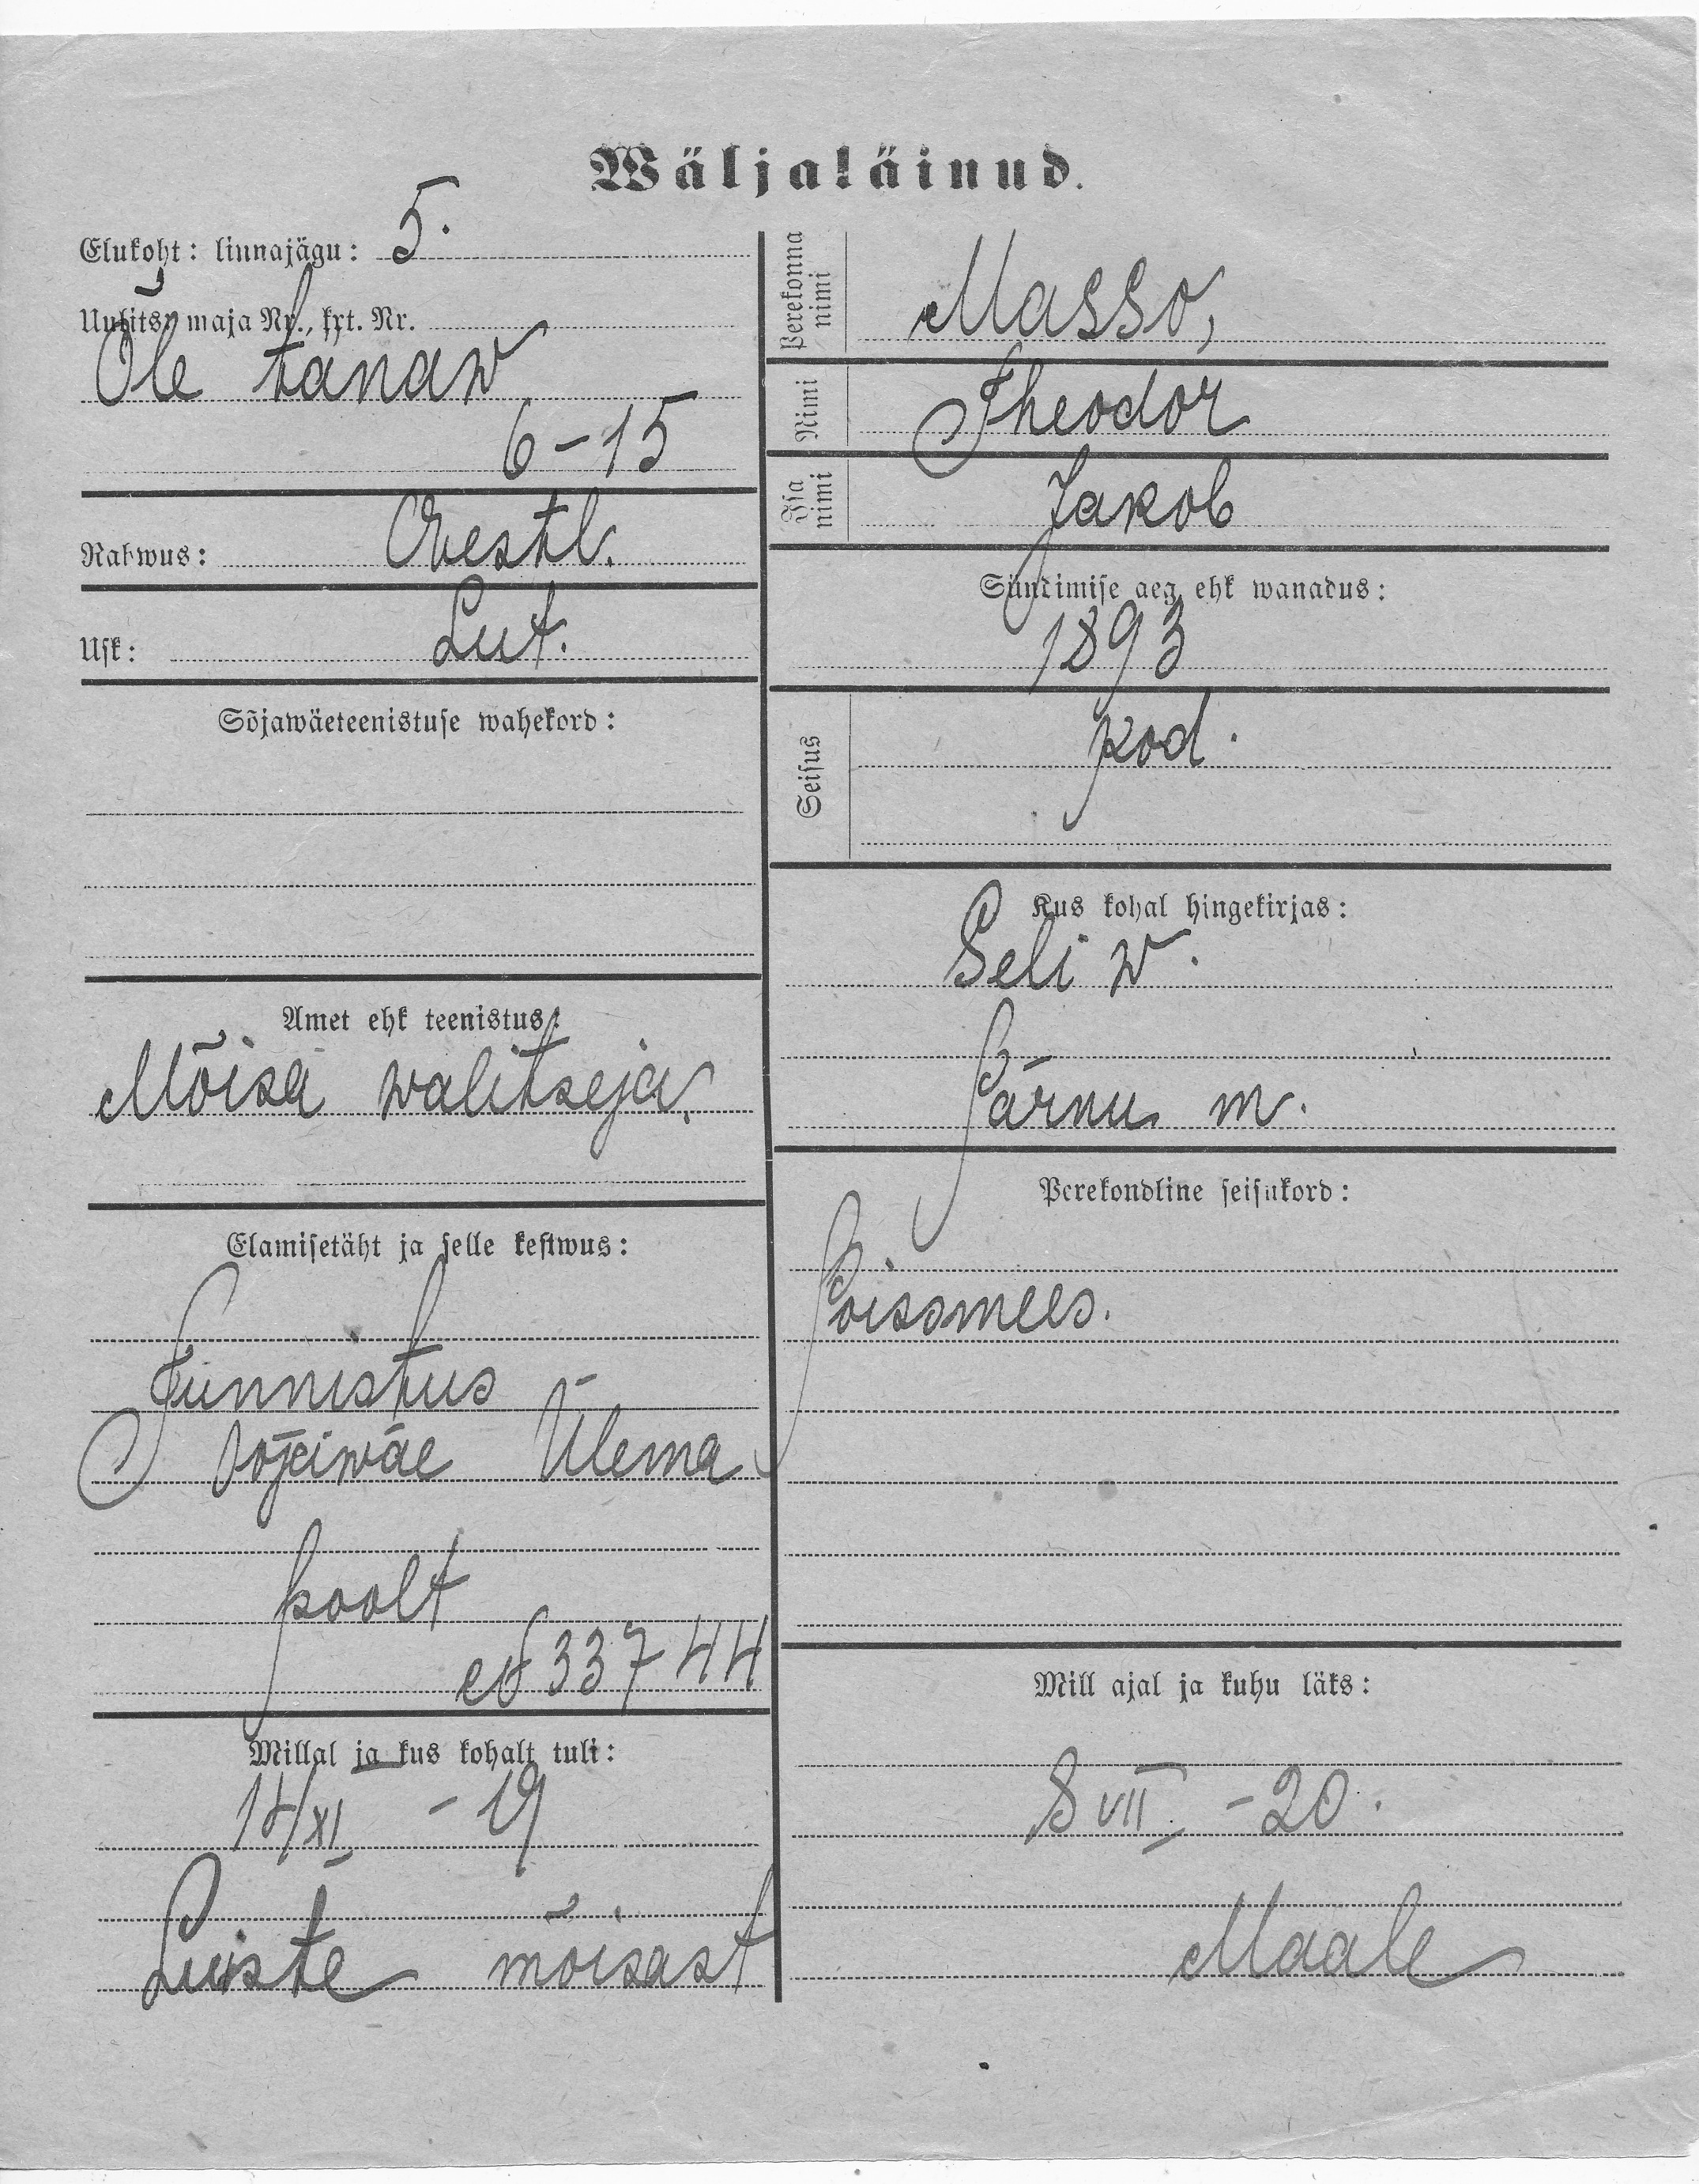 Wäljaläinud.
Elukoht: linnajägu: 5.
Uulits, maja Nr., krt. Nr.
Õle tänaw
6-15
Rahwus: Eestl.
Usk: Lut.
Sõjawäeteenistuse wahekord:
Amet ehk teenistus:
Mõisa walitseja.
Elamisetäht ja selle kestwus:
Tunnistus
sõjawäe Ülema
poolt
33744
Millal ja kus kohalt tuli:
14/XI - 19
mõisast
Perekonna nimi
Masso,
Nimi
Theodor
Isa nimi
Jakob
Sündimise aeg ehk wanadus:
1893
Seisus
kod.
Kus kohal hingekirjas:
Seli w.
Pärnu m.
Perekondline seisukord:
Poissmees.
Mill ajal ja kuhu läks:
8 VII - 20.
Maale